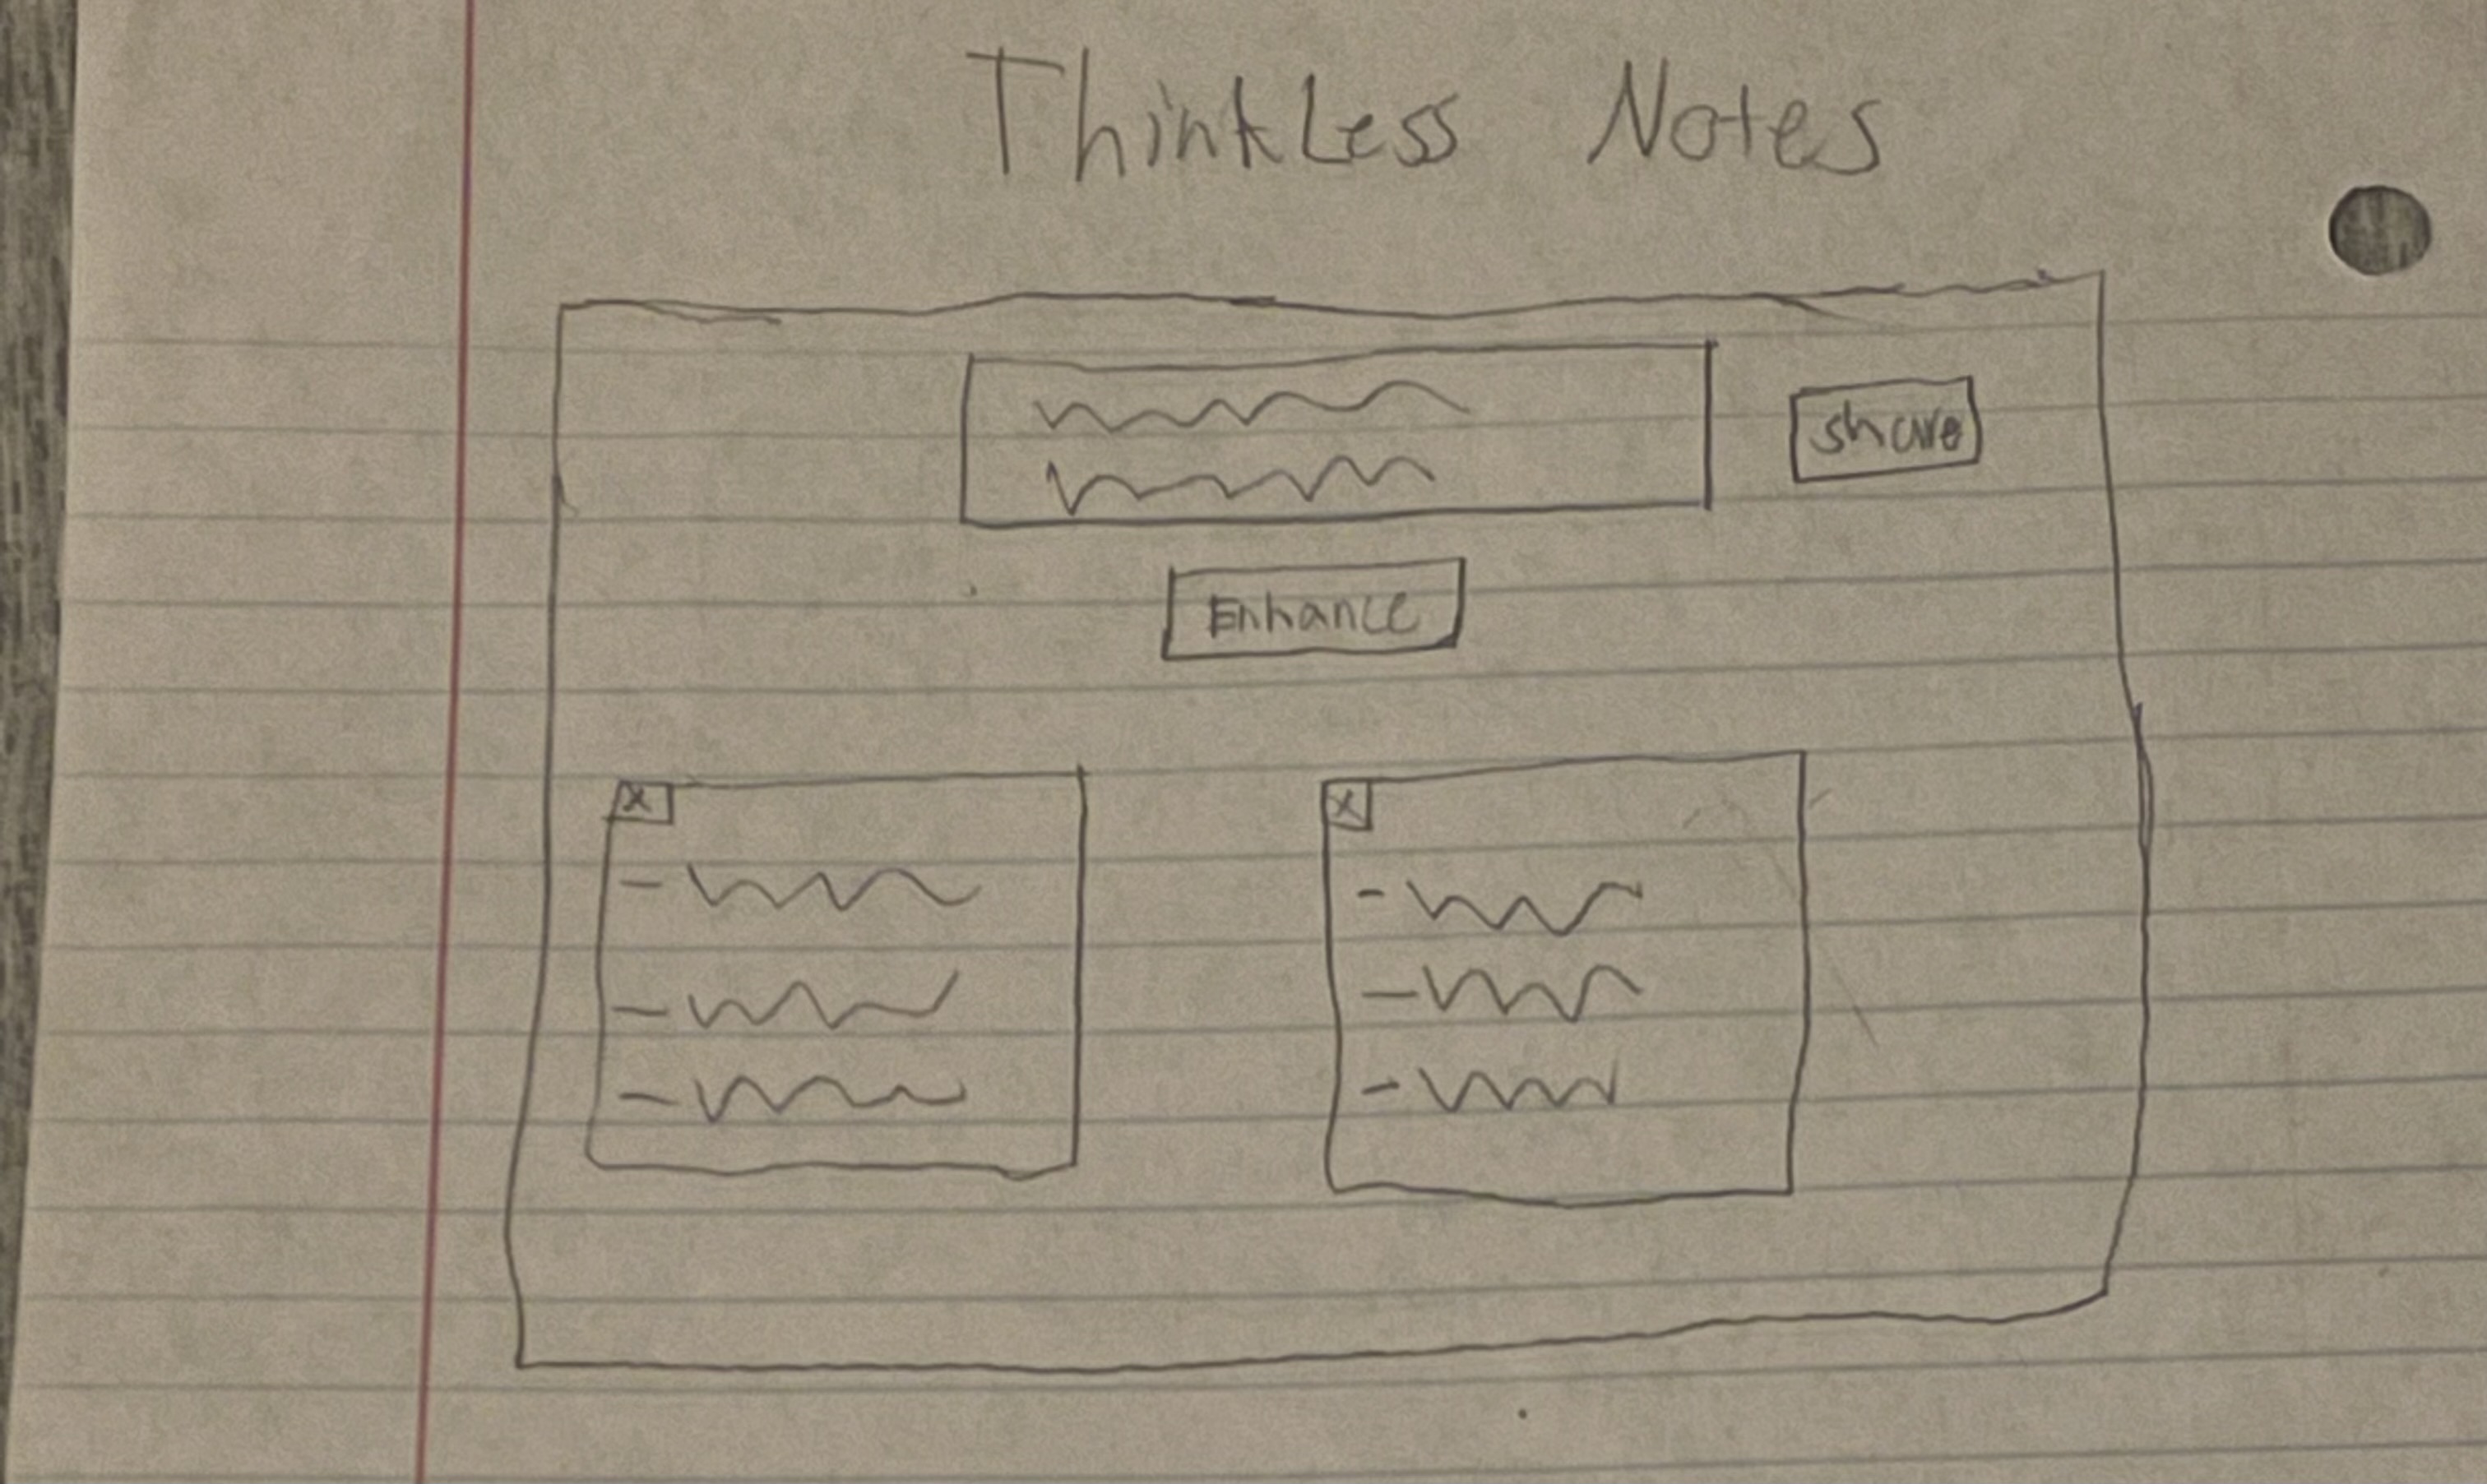 ThinkLess Notes
share
Enhance
X
X